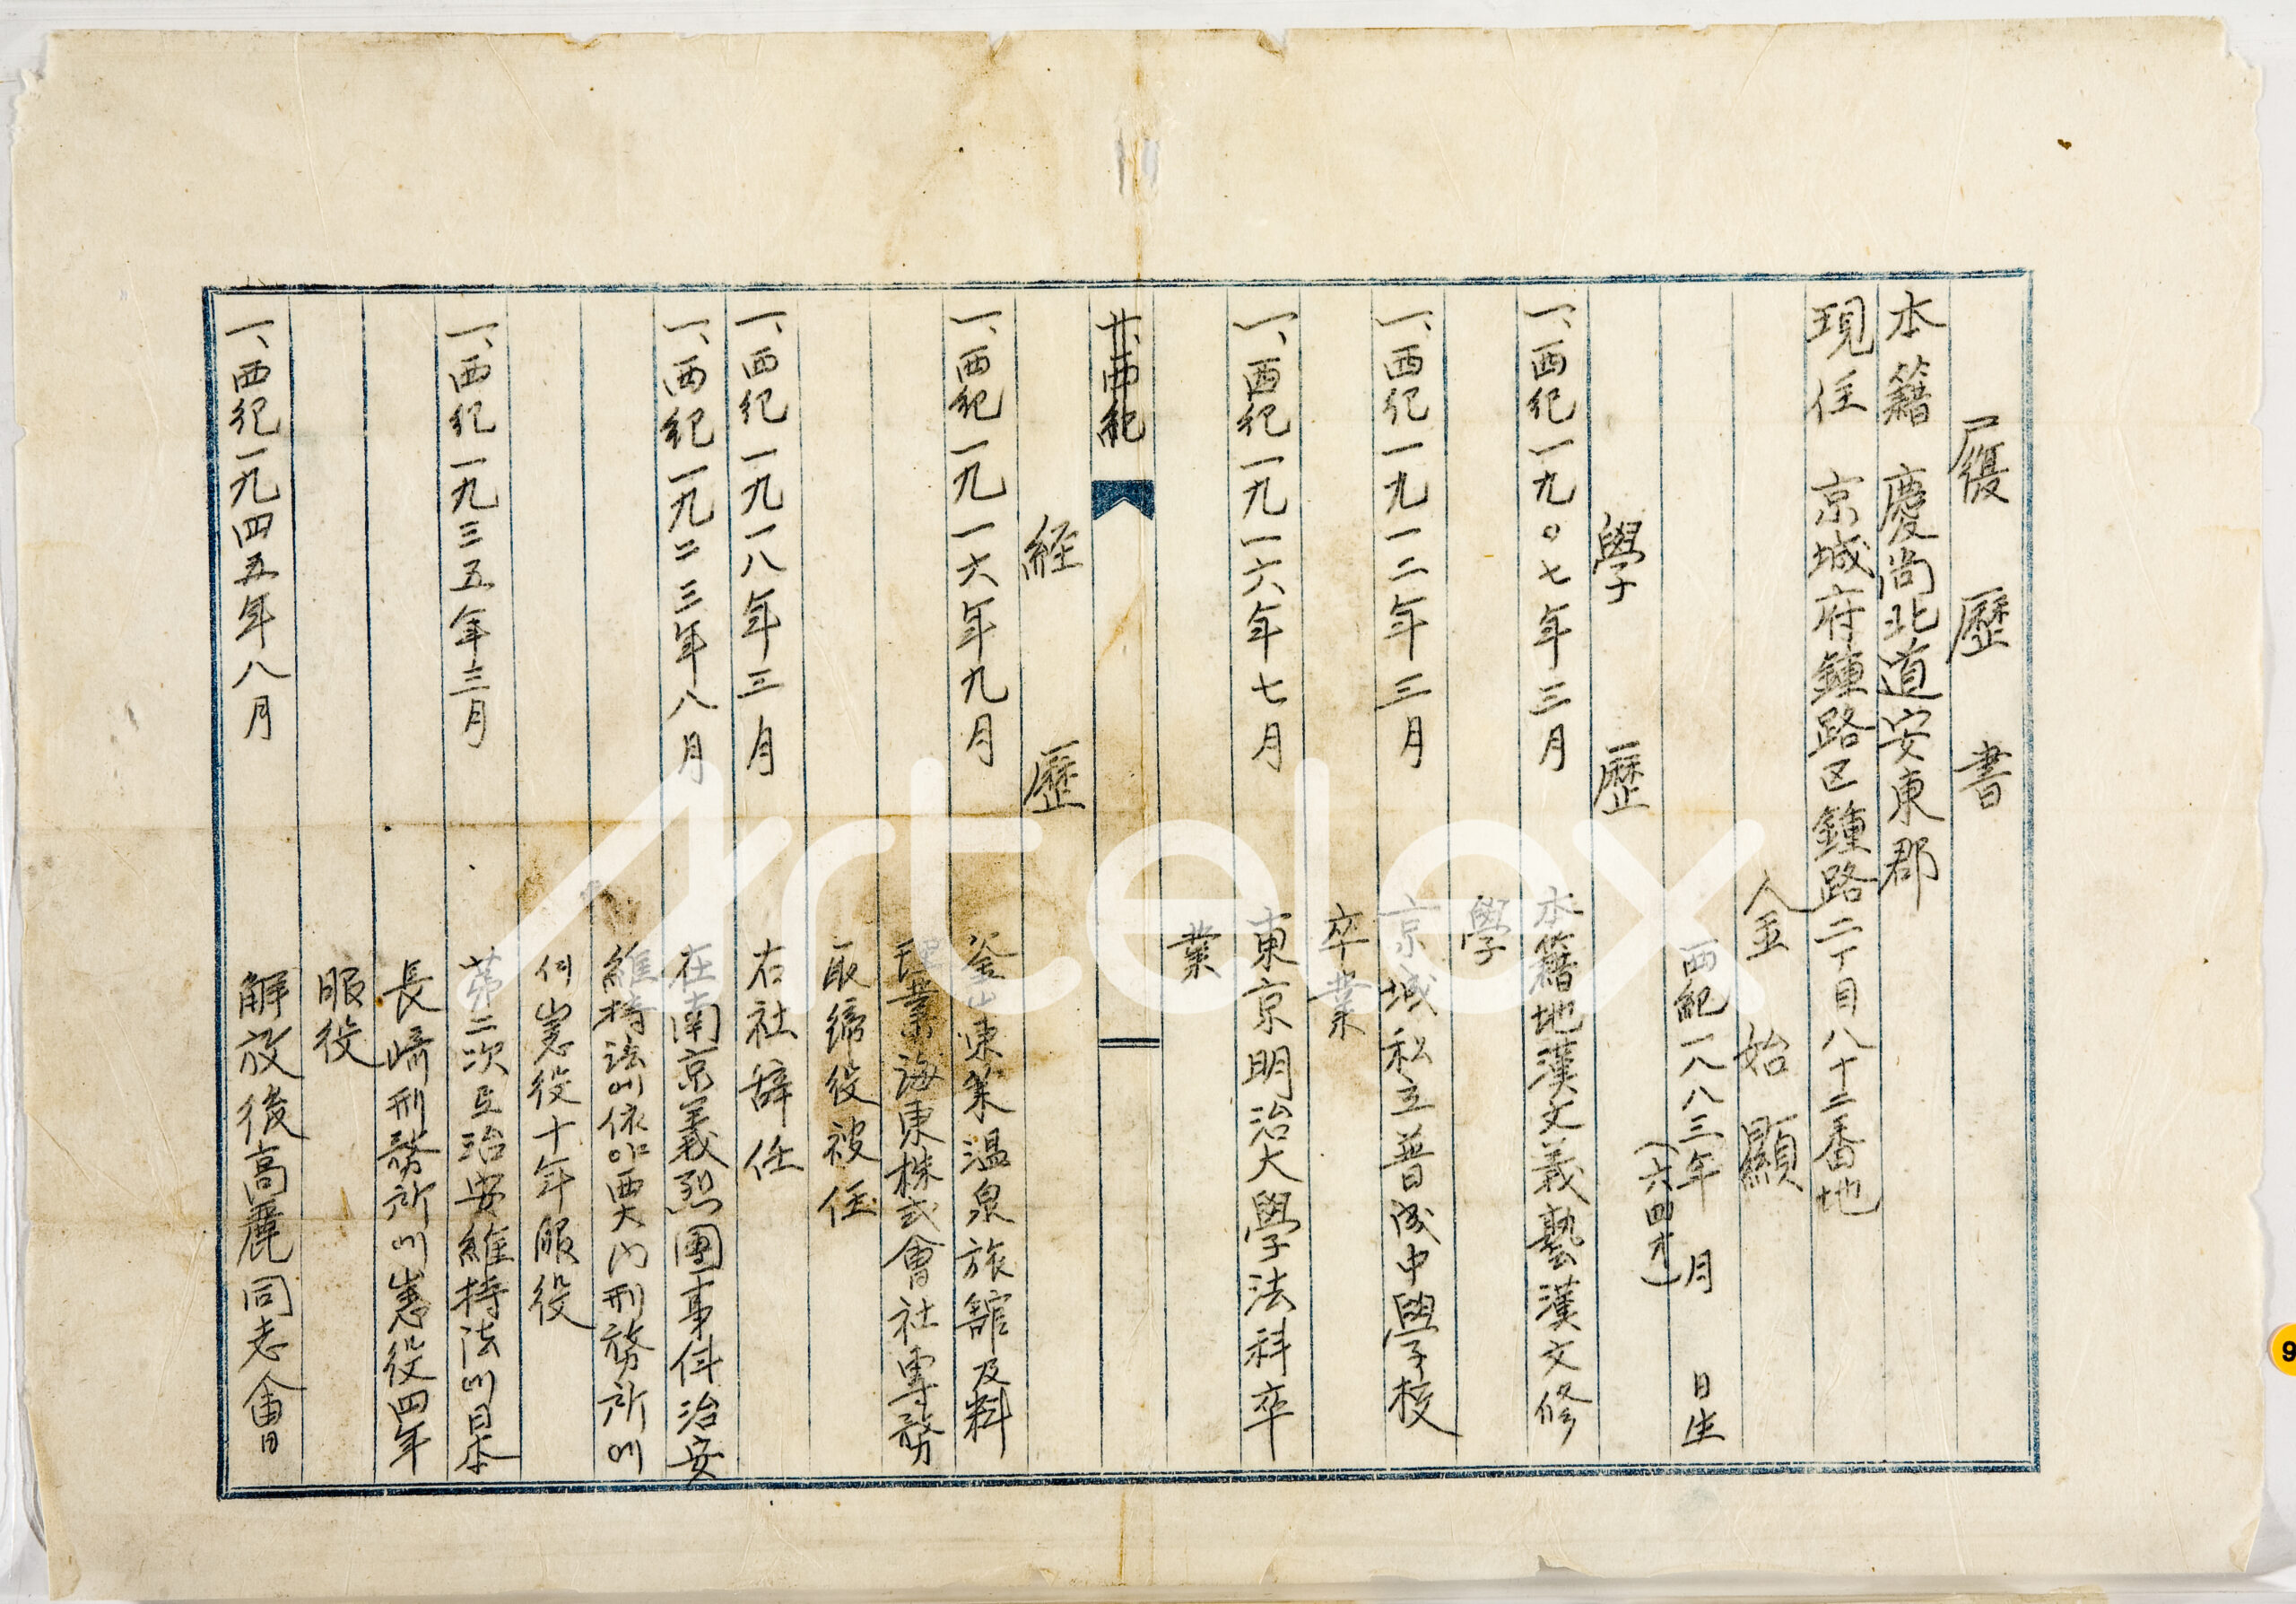 履歷書
本籍 慶尚北道安東郡
現住 京城府鍾路区鍾路二丁目八十二番地
金始顯
西紀一八八三年 月 日生
(六四才)
學歷
一、西紀一九〇七年三月 本籍地漢文義塾漢文修
學
一、西紀一九一二年三月 京城私立普成中學校
卒業
一、西紀一九一六年七月 東京明治大學法科卒
業
一、西紀
経歷
一、西紀一九一六年九月 釜山東萊温泉旅館及料
理業海東株式會社專務
取締役被任
一、西紀一九一八年三月 右社辞任
一、西紀一九二三年八月 在南京義烈團事件治安
維持法에依하야西大门刑務所에
서懲役十年服役
一、西紀一九三五年三月 第二次로治安維持法에日本
長崎刑務所에懲役四年
服役
一、西紀一九四五年八月 解放後高麗同志會
Artelox
9